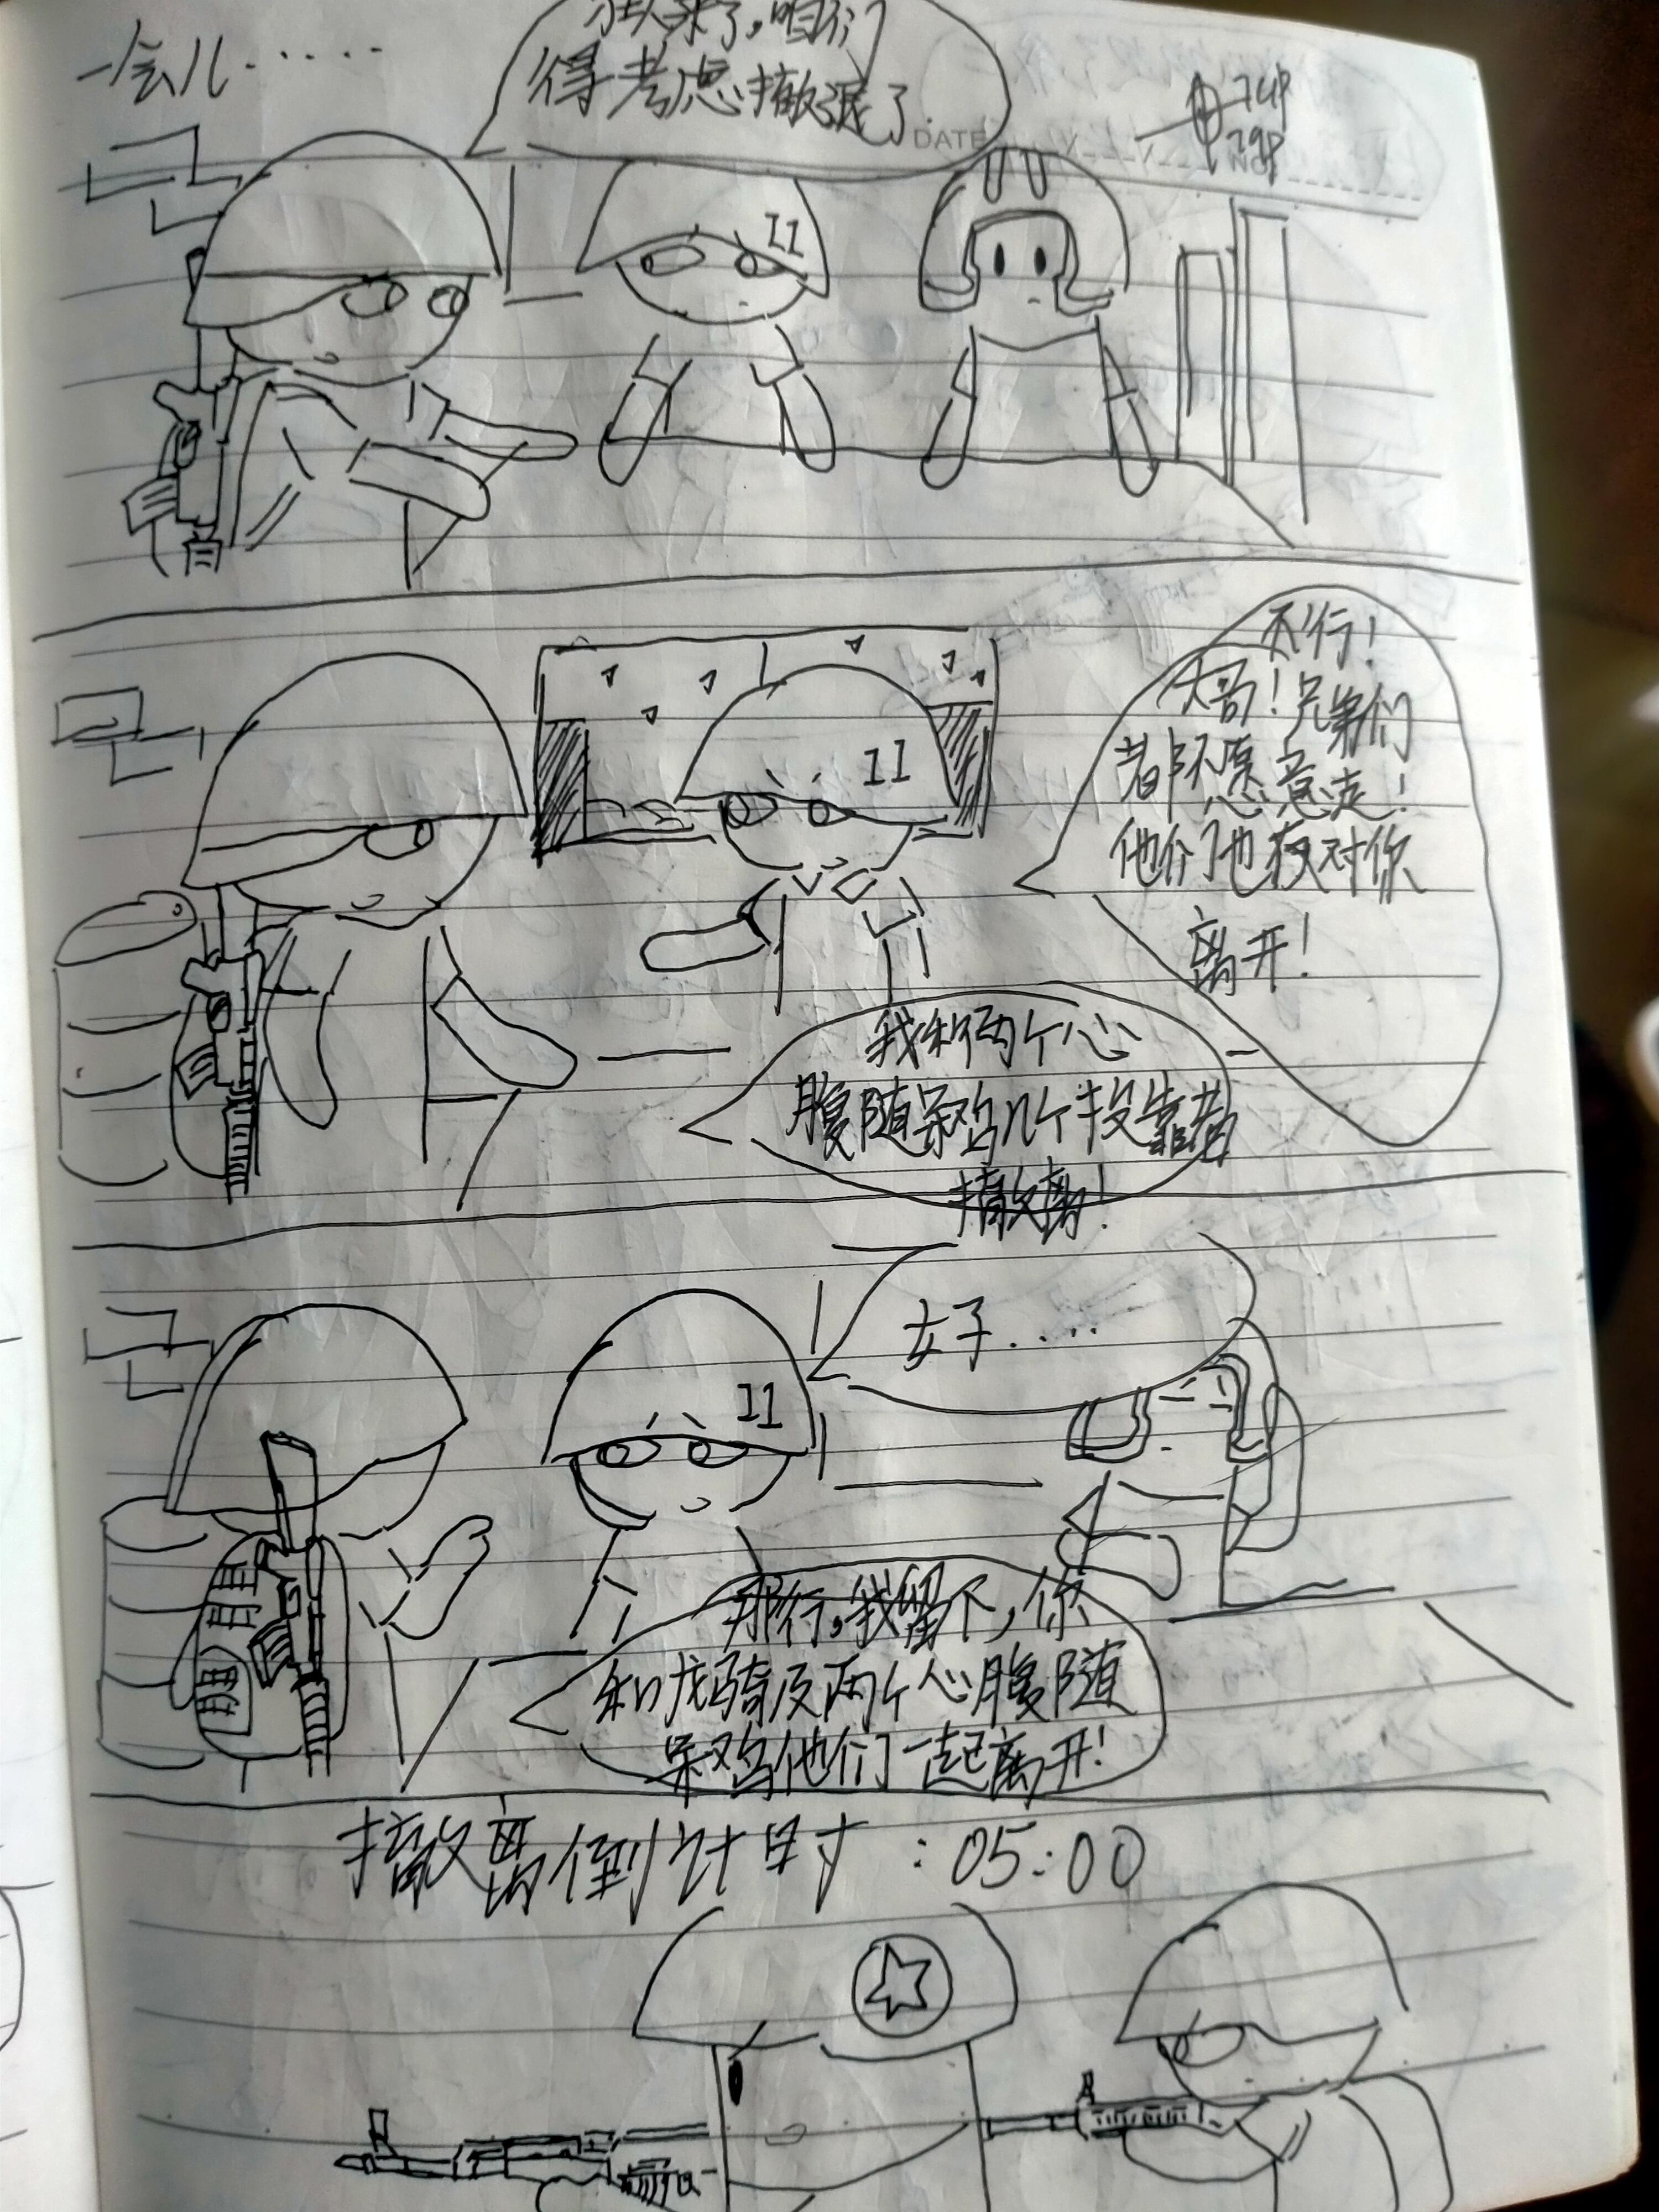 一会儿······
来了，咱们
得考虑撤退了.
DATE
NO.
11
不行！
大哥！兄弟们
都不愿意走！
他们也反对你
离开！
11
我和两个心
腹随呆鸡几个投靠者
撤离！
好....
11
那行，我留下，你
和龙骑及两个心腹随
呆鸡他们一起离开！
撤离倒计时：05:00